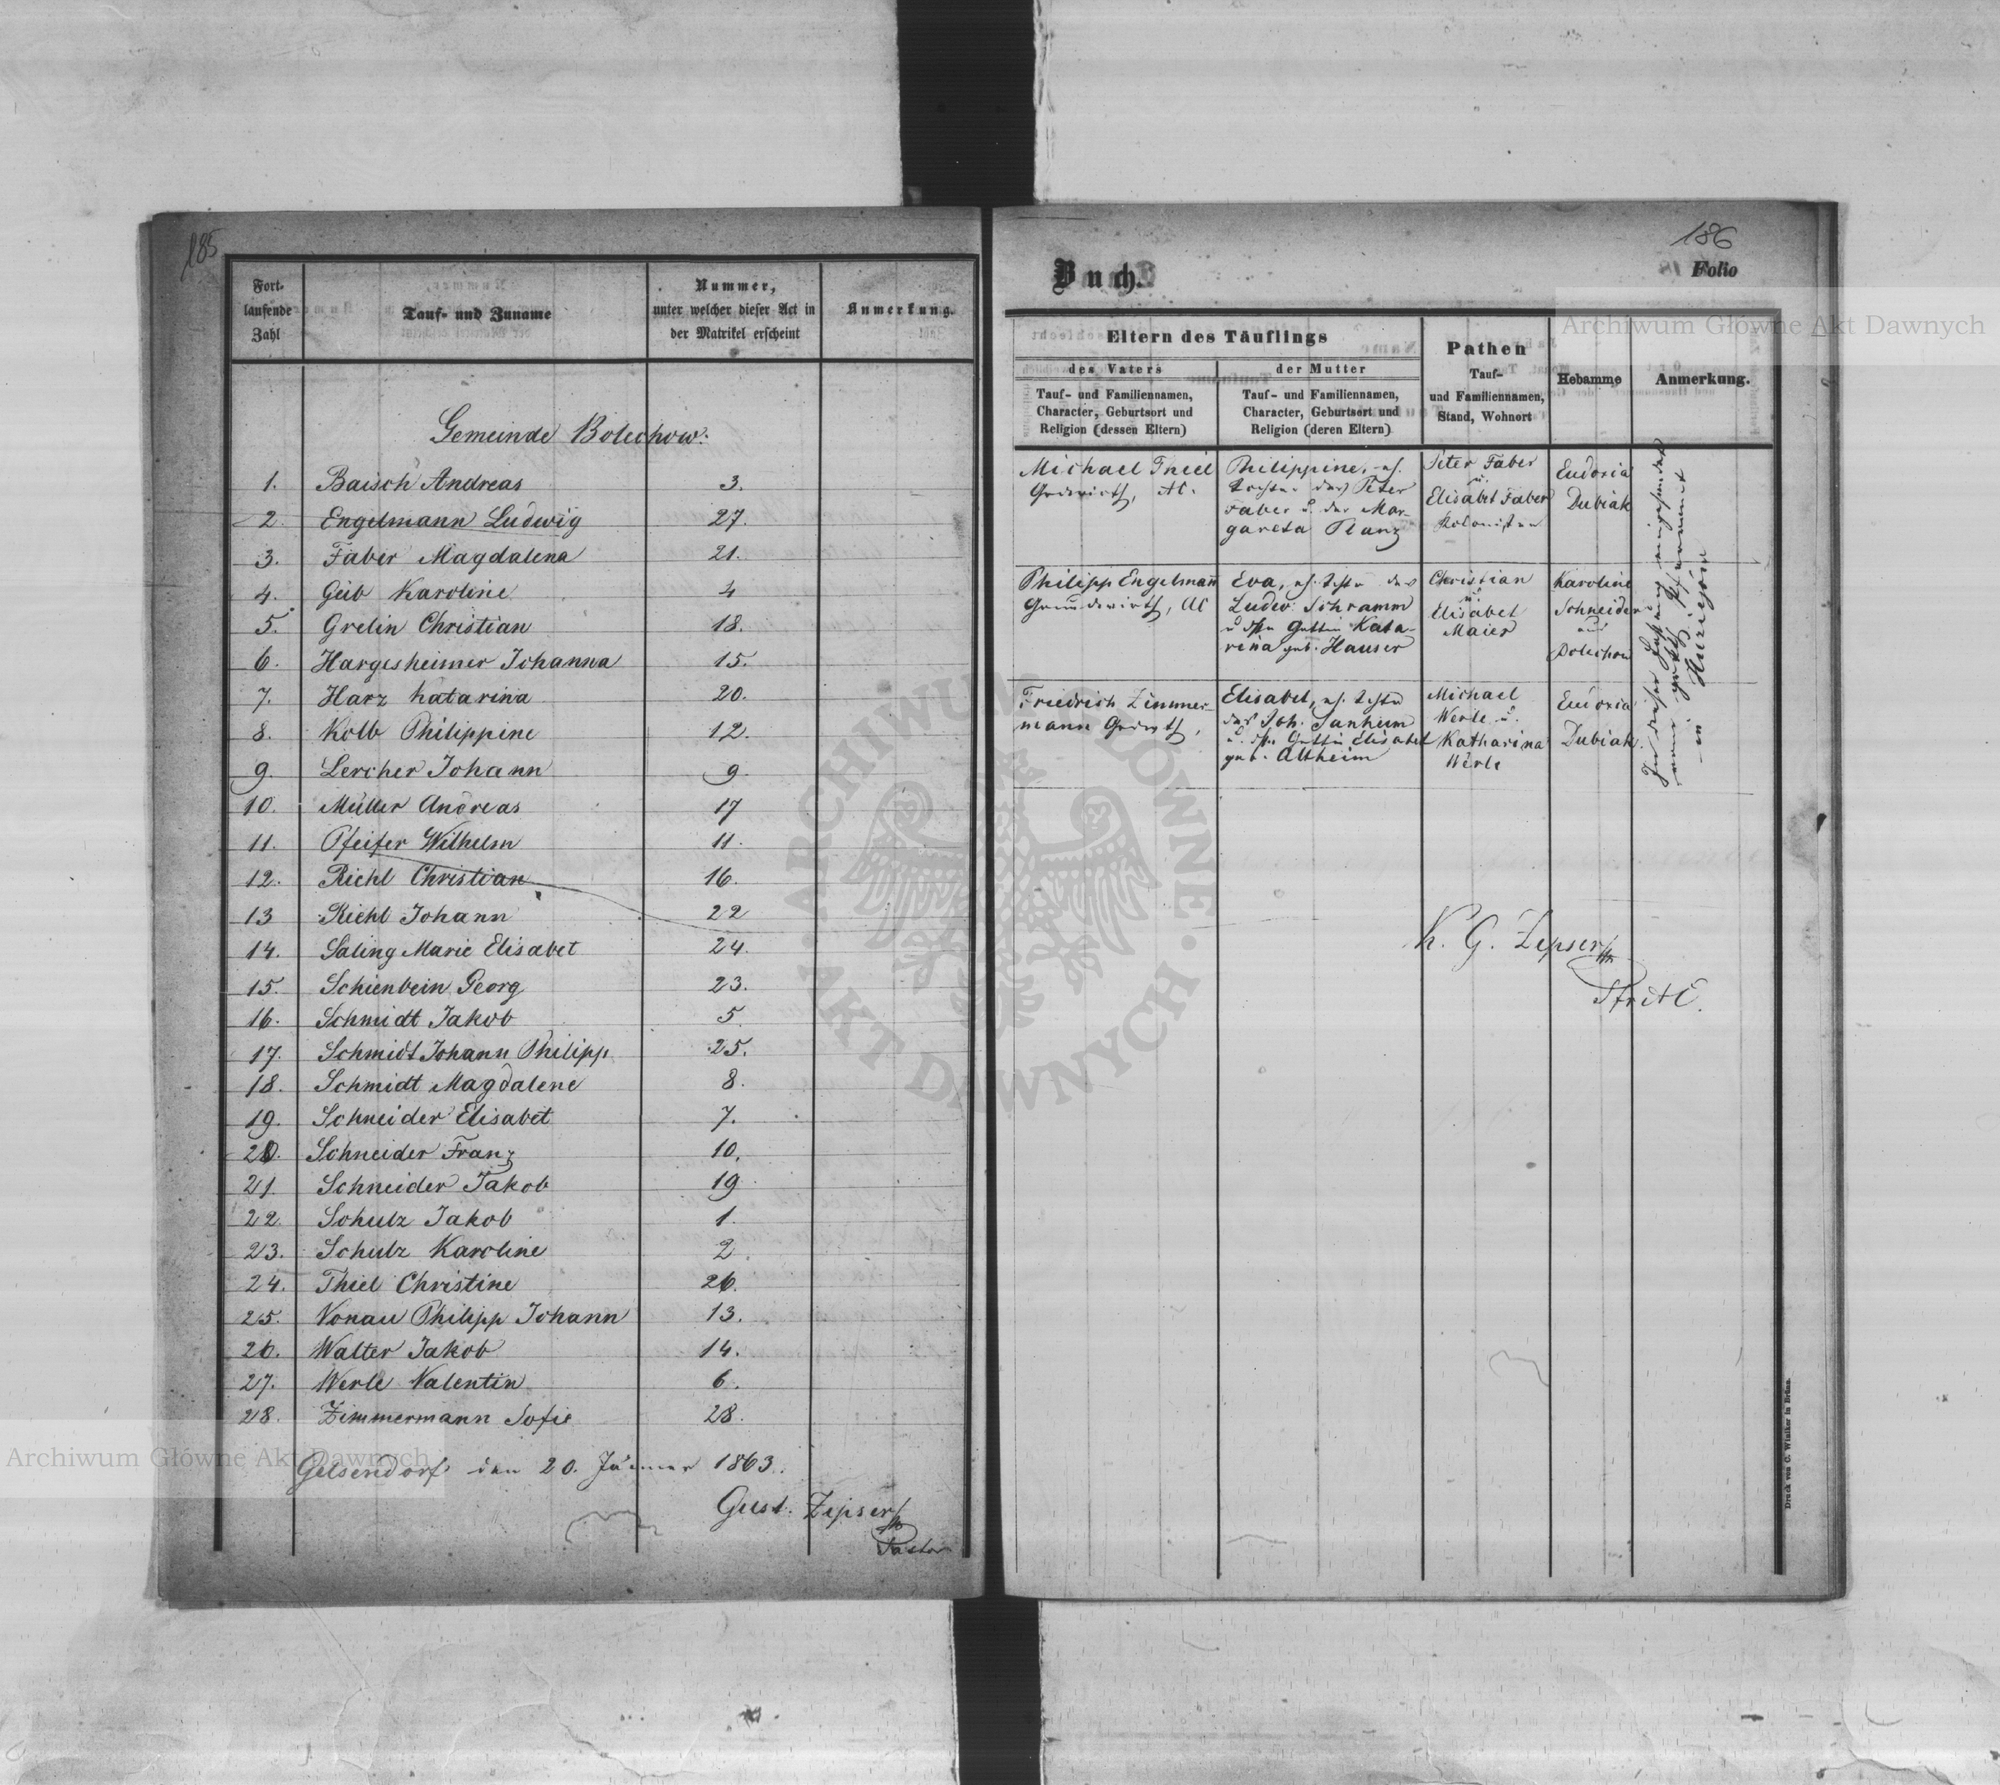 185
Fort-
laufende
Zahl
Tauf- und Zuname
Nummer,
unter welcher dieser Act in
der Matrikel erscheint
Anmerkung.
Gemeinde Bolechow:
1. Baisch Andreas 3.
2. Engelmann Ludwig 27.
3. Faber Magdalena 21.
4. Geib Karoline 4
5. Grelin Christian 18.
6. Hargesheimer Johanna 15.
7. Harz Katarina 20.
8. Kolb Philippine 12.
9. Lercher Johann 9.
10. Müller Andreas 17
11. Pfeifer Wilhelm 11.
12. Riehl Christian 16.
13 Riehl Johann 22
14. Saling Marie Elisabet 24.
15. Schienbein Georg 23.
16. Schmidt Jakob 5.
17. Schmidt Johann Philipp 25.
18. Schmidt Magdalene 8.
19. Schneider Elisabet 7.
20. Schneider Franz 10.
21. Schneider Jakob 19
22. Schulz Jakob 1.
23. Schulz Karoline 2
24. Thiel Christine 26.
25. Vonau Philipp Johann 13.
26. Walter Jakob 14.
27. Werle Valentin 6.
28. Zimmermann Sofie 28.
Gelsendorf den 20. Jänner 1863.
Gust. Zipser
Pastor
186
Buch.
Folio
Eltern des Täuflings
des Vaters
Tauf- und Familiennamen,
Character, Geburtsort und
Religion (dessen Eltern)
der Mutter
Tauf- und Familiennamen,
Character, Geburtsort und
Religion (deren Eltern)
Pathen
Tauf-
und Familiennamen,
Stand, Wohnort
Hebamme
Anmerkung.
Michael Thiel
Grdwirth, AC.
Philippine, eh.
Tochter des Peter
Faber u. der Mar-
gareta Planz
Peter Faber
u.
Elisabet Faber
Kolonisten
Eudoxia
Dubiak
Philipp Engelmann
Grundwirth, AC
Eva, eh. Tochter des
Ludw. Schramm
u. dssn Gattin Kata-
rina geb. Hauser
Christian
u.
Elisabet
Maier
Karoline
Schneider
aus
Bolechow
Friedrich Zimmer-
mann Grdwrth,
Elisabet, eh. Tochter
des Joh. Sanheim
u. dssn Gattin Elisabet
geb. Altheim
Michael
Werle u.
Katharina
Werle
Eudoxia
Dubiak.
in
K. G. Zipser
Pfr AC.
Druck von C. Winiker in Brünn.
Archiwum Główne Akt Dawnych
Archiwum Główne Akt Dawnych
ARCHIWUM GŁÓWNE · AKT DAWNYCH ·